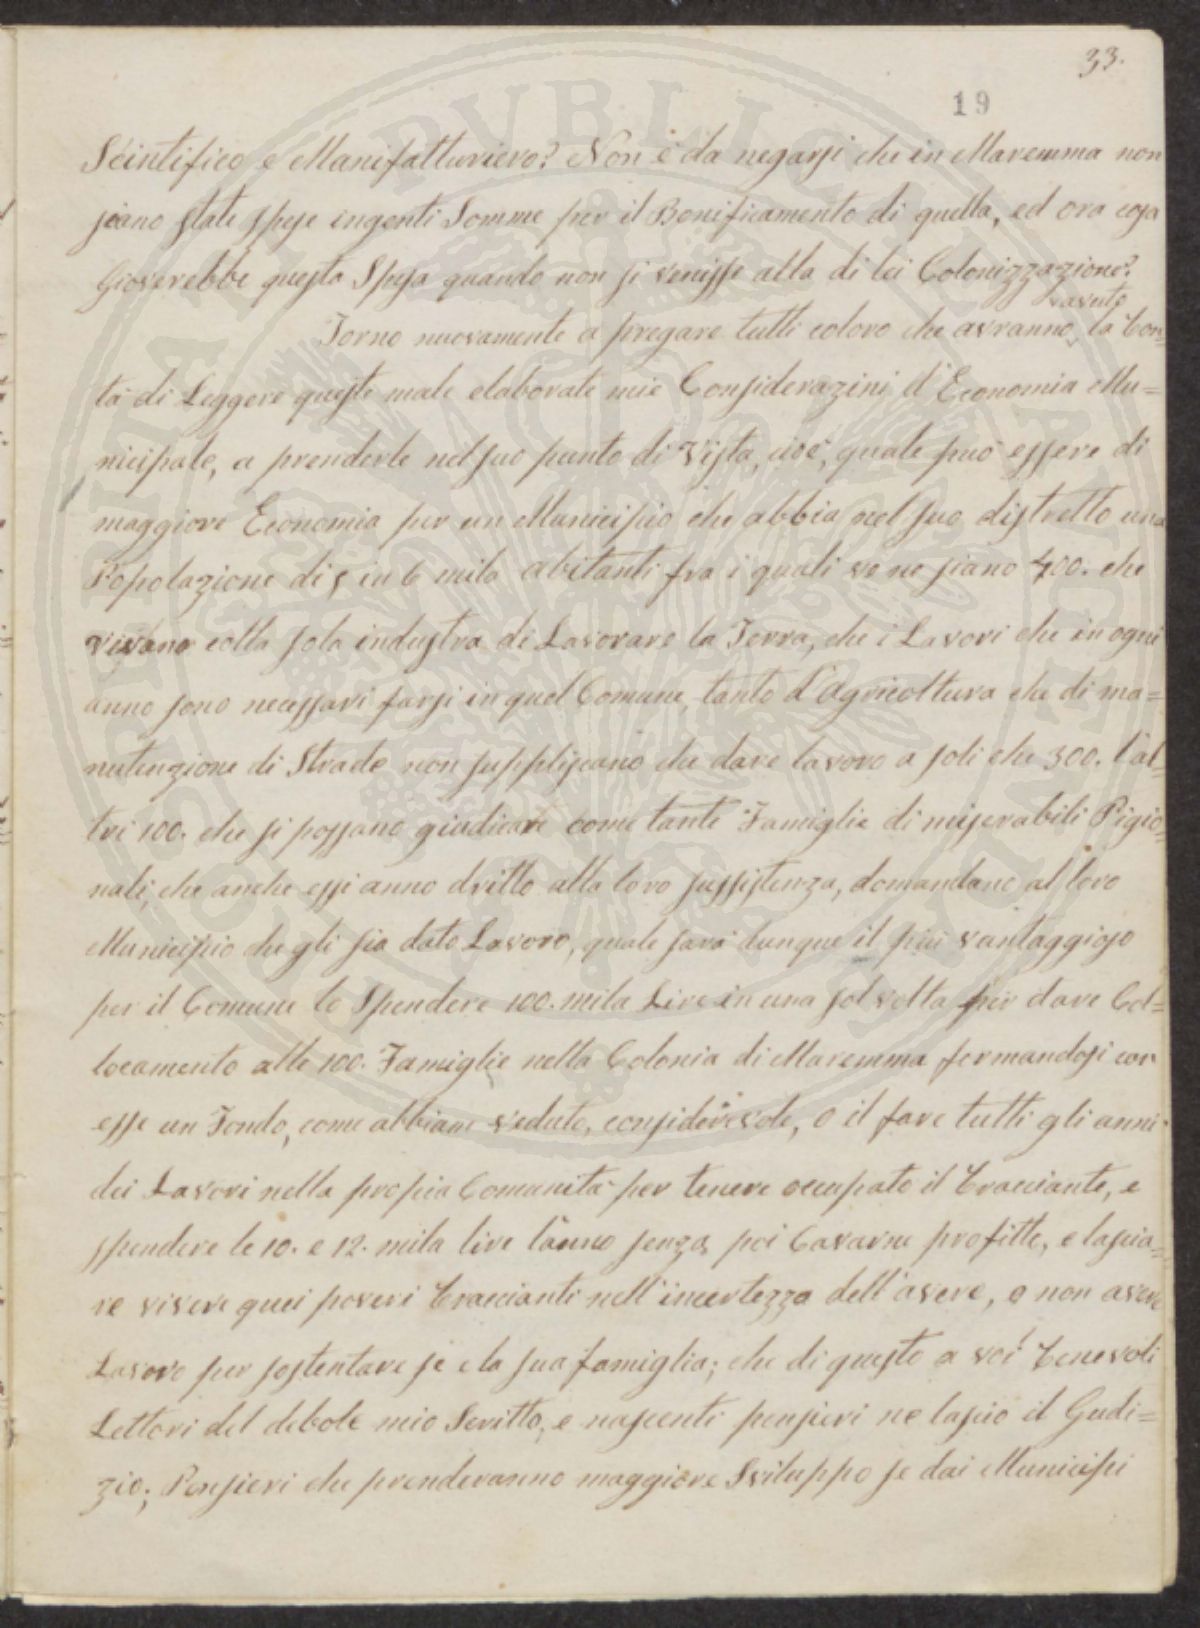 33.
19
Scintifico e Manifatturiero? Non è da negarsi che in Maremma non
siano state spese ingenti Somme per il Bonificamento di quella, ed ora cosa
Gioverebbe questa Spesa quando non si venisse alla di lei Colonizzazione?
avuto
Torno nuovamente a pregare tutti coloro che avranno la bon=
tà di Leggere queste male elaborate mie Considerazini d'Economia Mu=
nicipale, a prenderle nel suo punto di Vista, cioè, quale può essere di
maggiore Economia per un Municipio che abbia nel suo distretto una
Popolazione di 5 in 6 mila abitanti fra i quali ve ne siano 400. che
vivano colla sola industra di Lavorare la Terra, che i Lavori che in ogni
anno sono necessari farsi in quel Comune, tanto d'Agricoltura che di ma=
nutenzione di Strade non suppliscano che dare lavoro a soli che 300. l'al=
tri 100. che si possano giudicare come tante Famiglie di miserabili Pigio=
nali, che anche essi anno dritto alla loro sussistenza, domandano al loro
Municipio che gli sia dato Lavoro, quale sarà dunque il più vantaggioso
per il Comune lo Spendere 100. mila Lire in una sol volta per dare Col=
locamento alle 100. Famiglie nella Colonia di Maremma formandosi con
esse un Fondo, come abbiam veduto, considerevole, o il fare tutti gli anni
dei Lavori nella propia Comunità per tenere occupato il bracciante, e
spendere le 10. e 12. mila lire l'anno senza poi Cavarne profitto, e lascia=
re vivere quei poveri braccianti nell'incertezza dell'avere, o non avere
Lavoro per sostentare se e la sua famiglia; che di questo a voi! benevoli
Lettori del debole mio Scritto, e nascenti pensieri ne lascio il Gudi=
zio; Pensieri che prenderanno maggiore Sviluppo se dai Municipi